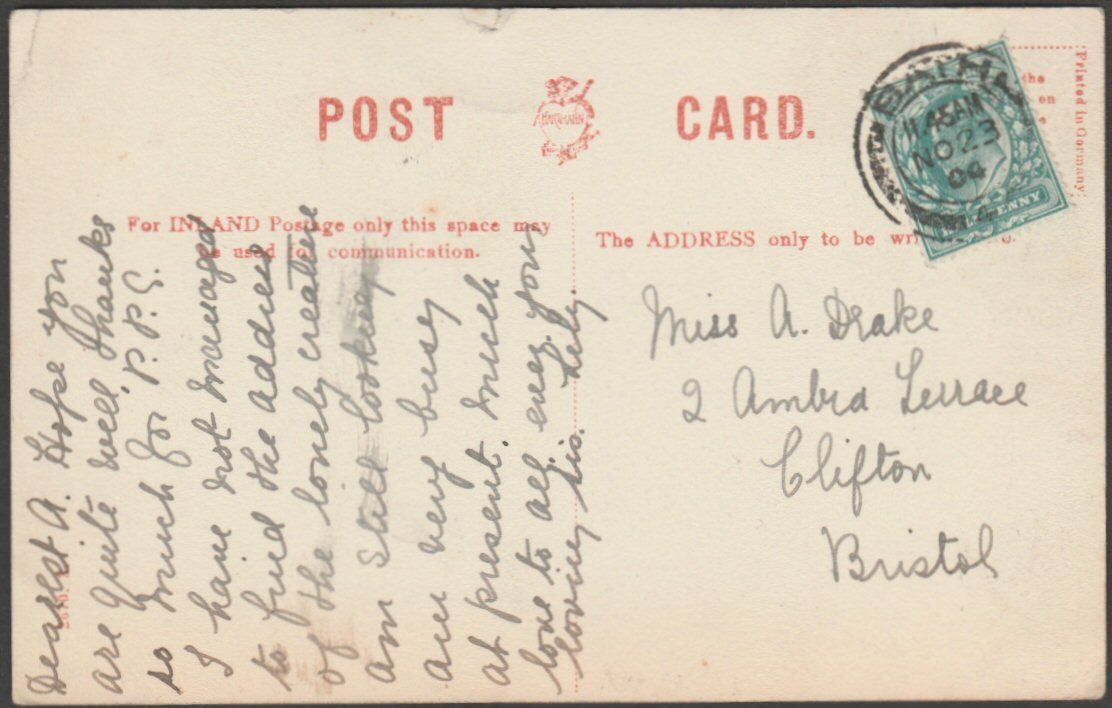 POST CARD.
HARTMANN
Printed in Germany.
the
on
BATH
11.45AM
NO 23
04
PENNY
For INLAND Postage only this space may
be used for communication.
The ADDRESS only to be wri
Miss A. Drake
2 Ambra Terrace
Clifton
Bristol
Dearest A. Hope you
are quite well, thanks
so much for P.P.C.
I have not managed
to find the address
of the lonely creature
am still looking
am very busy
at present. Much
love to all, ever your
loving sis. Lely.